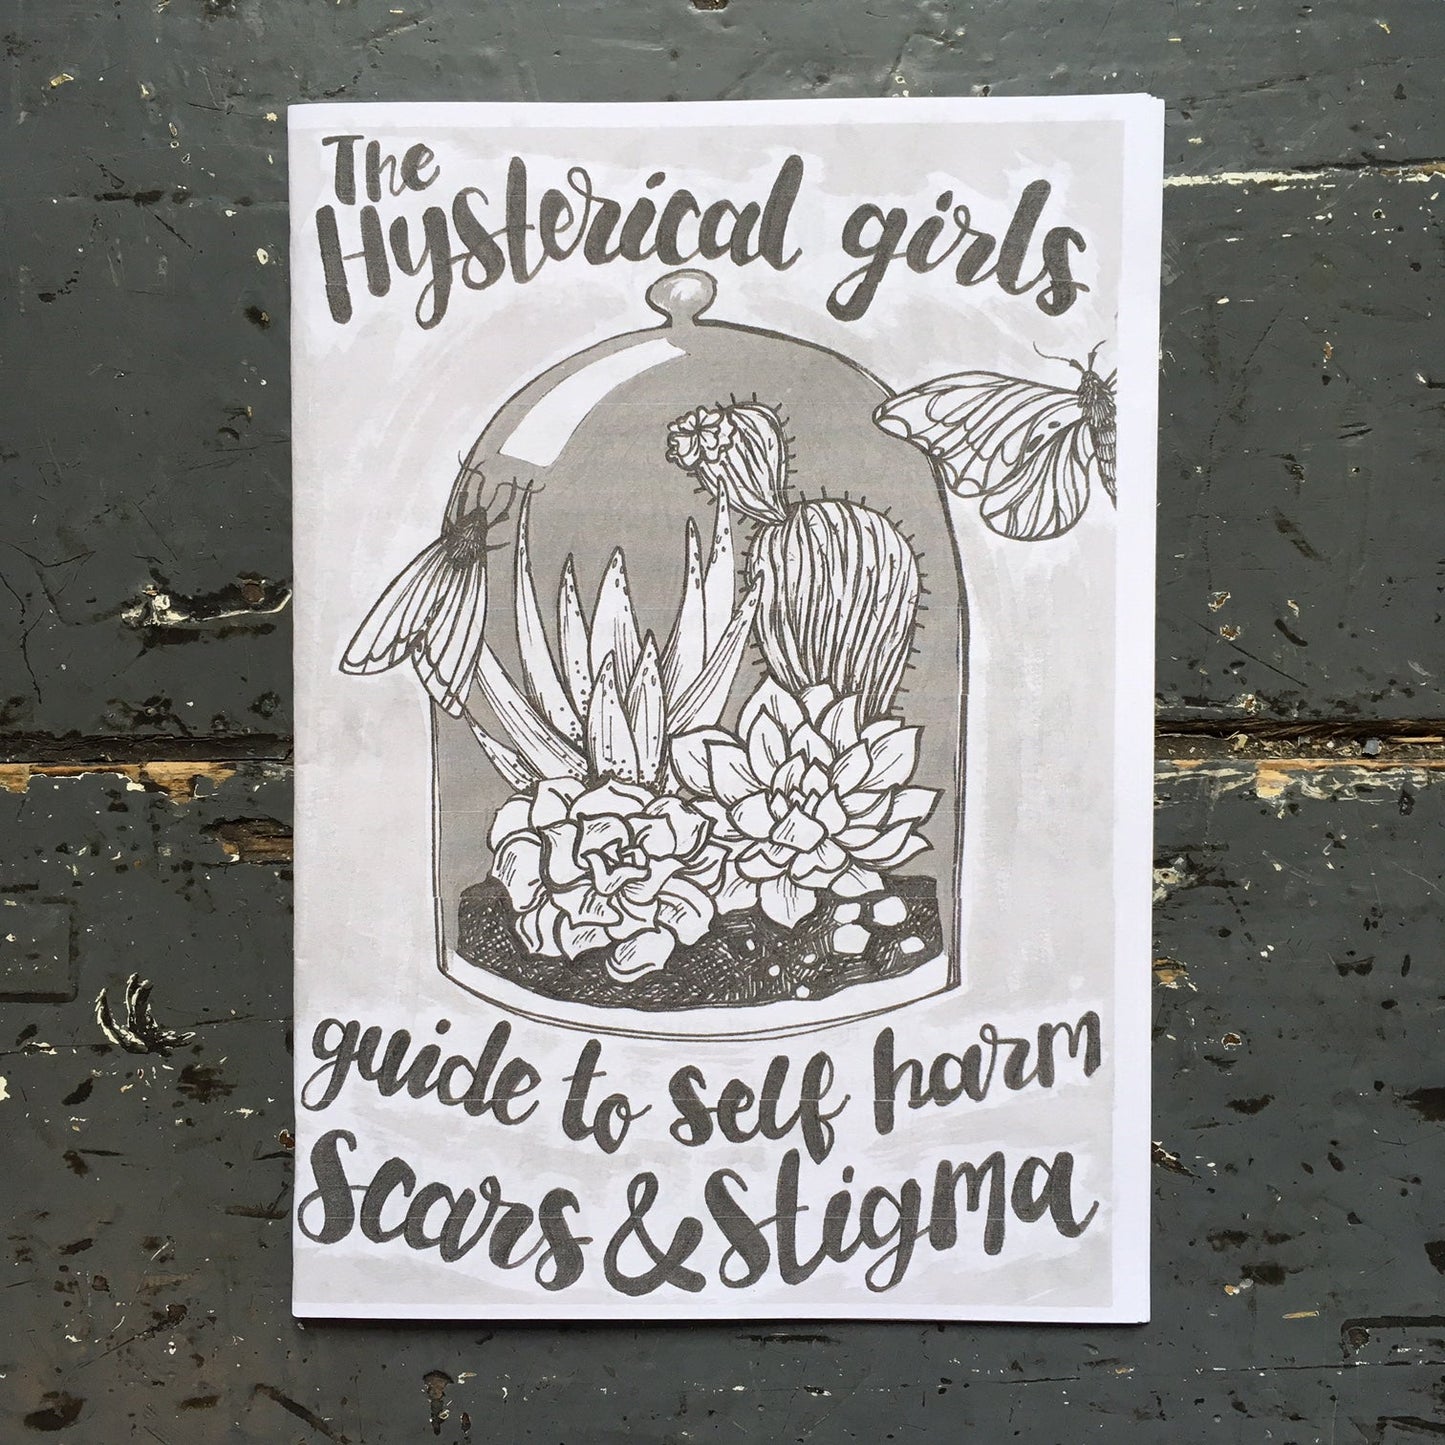 The
Hysterical girls
guide to self harm
Scars & Stigma